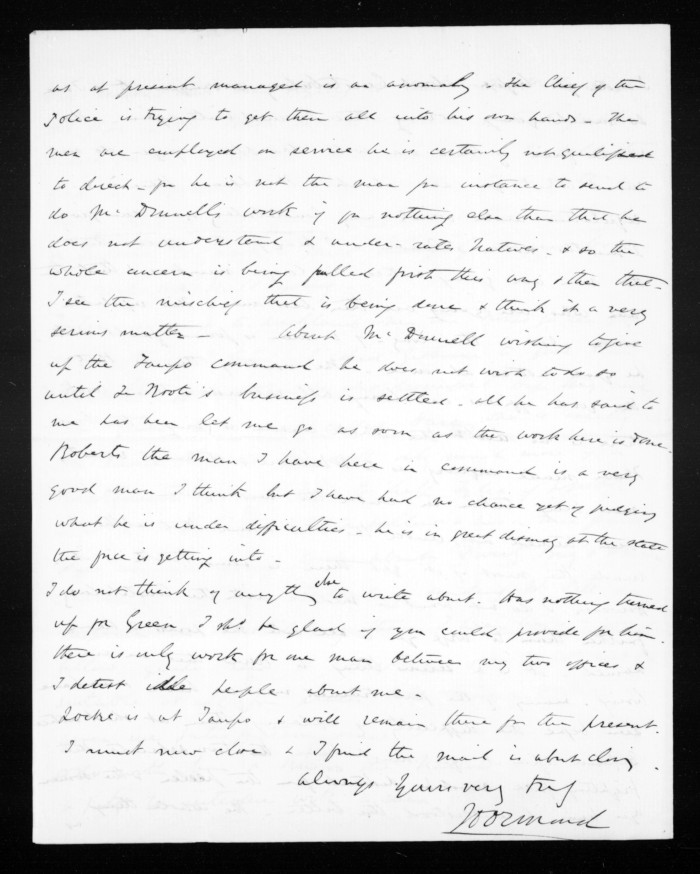 as at present managed is an anomaly - the Chief of the
Police is trying to get them all into his own hands - the
men are employed on service he is certainly not qualified
to direct - for he is not the man for instance to send to
do McDonnell's work if for nothing else than that he
does not understand & under-rates Natives - & so the
whole concern is being pulled first this way & then that -
I see the mischief that is being done & think it a very
serious matter - About McDonnell wishing to give
up the Taupo command he does not wish to do so
until Te Kooti's business is settled - all he has said to
me has been let me go as soon as the work here is done.
Roberts the man I have here in command is a very
good man I think but I have had no chance yet of judging
what he is under difficulties - he is in great dismay at the state
the force is getting into -
I do not think of anything else to write about. Has nothing turned
up for Green I shd. be glad if you could provide for him.
there is only work for one man between my two offices &
I detest idle people about me -
Locke is at Taupo & will remain there for the present.
I must now close & I find the mail is about closing.
Always Yours very truly
JDOrmond